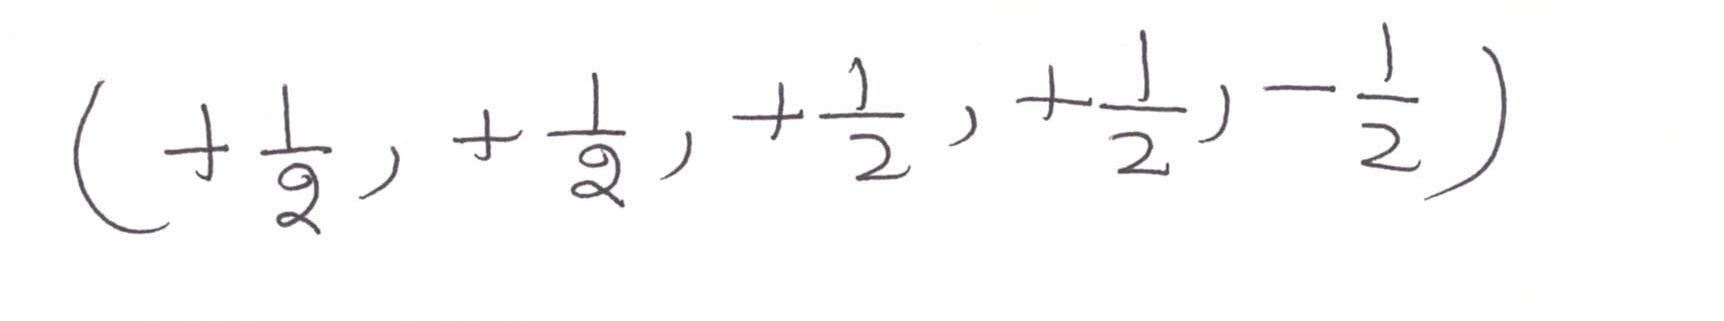 (+1/2, +1/2, +1/2, +1/2, -1/2)